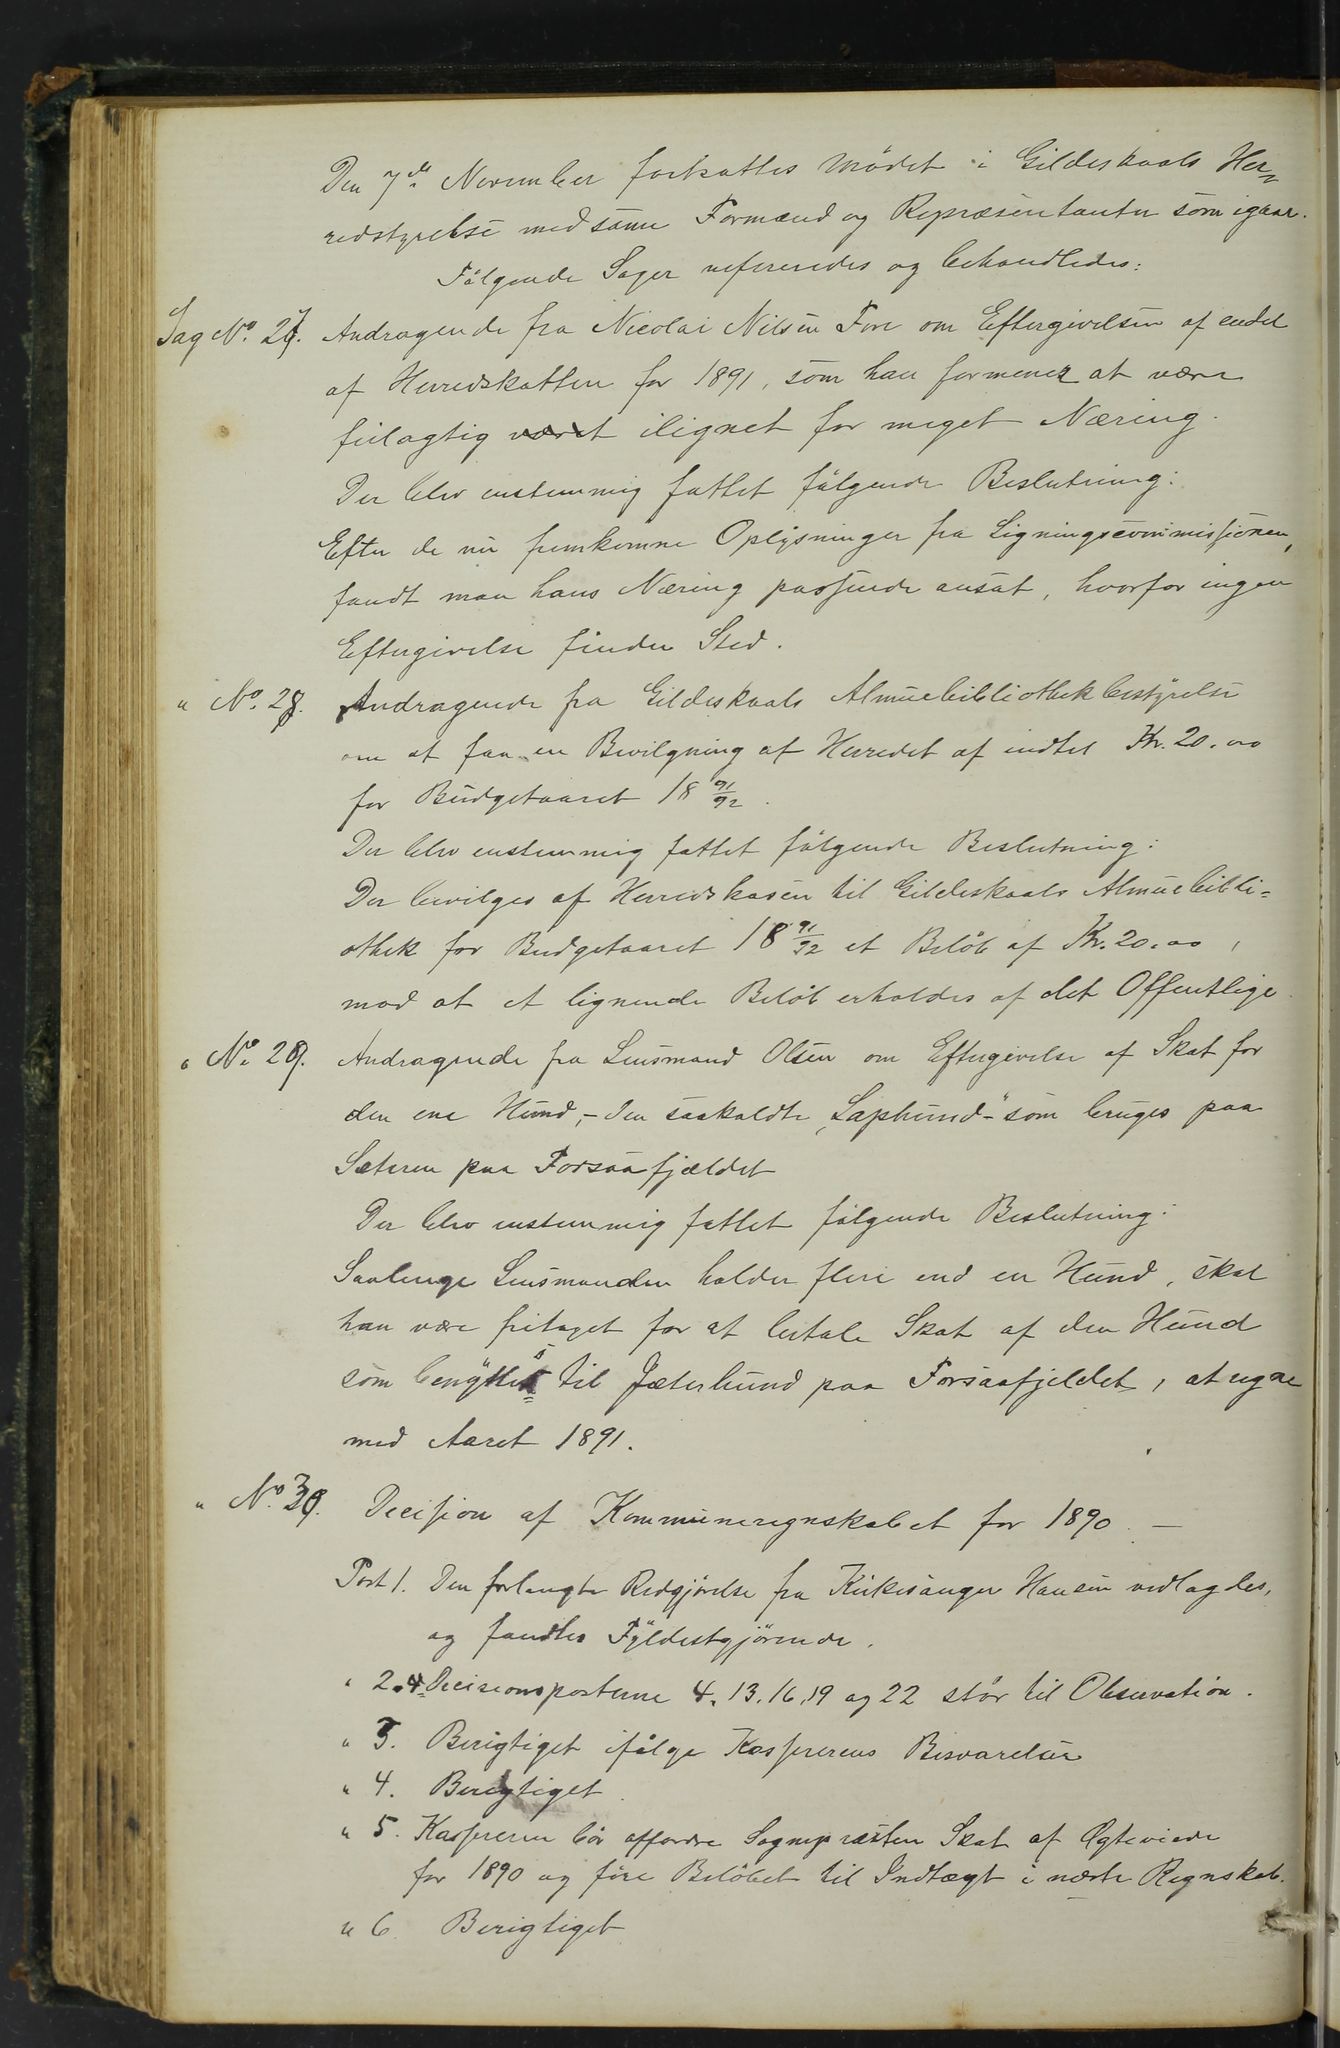 Den 7de November fortsattes Mödet i Gildeskaals Her-
redstyrelse med samme Formænd og Repræsentanter som igaar.
Fölgende Sager refereredes og behandledes:
Sag No. 27. Andragende fra Nicolai Nilsen Fore om Eftergivelsen af endel
af Herredskatten for 1891, som han formener at være
feilagtig været ilignet for meget Næring.
Der blev enstemmig fattet fölgende Beslutning:
Efter de nu fremkomne Oplysninger fra Ligningscommissionen,
fandt man hans Næring passende ansat, hvorfor ingen
Eftergivelse finder Sted.
" No. 28. Andragende fra Gildeskaals Almuebibliothekbestyrelse
om at faa en Bevilgning af Herredet af indtil Kr. 20.00
for Budgetaaret 18 91/92.
Der blev enstemmig fattet fölgende Beslutning:
Der bevilges af Herredskasen til Gildeskaals Almuebibli=
othek for Budgetaaret 18 91/92 et Belöb af Kr. 20.00,
mod at et lignende Belöb erholdes af det Offentlige
" No. 29. Andragende fra Lensmand Olsen om Eftergivelse af Skat for
den ene Hund,- den saakaldte "Laphund"- som bruges paa
Sæteren paa Forsaafjældet
Der blev enstemmig fattet fölgende Beslutning:
Saalenge Lensmanden holder flere end en Hund, skal
han være fritaget for at betale Skat af den Hund
som benyttes til Jæterhund paa Forsaafjeldet, at regne
med Aaret 1891.
" No. 30. Decision af Kommuneregnskabet for 1890. —
Post 1. Den forlangte Redgjörelse fra Kirkesanger Hansen vedlagdes,
og fandtes Fyldestgjörende.
" 2. Decisionsposterne 4, 13, 16, 19 og 22 står til Observation.
" 3. Berigtiget ifölge Kassererens Besvarelse
" 4. Berigtiget
" 5. Kassereren bör affordre Sognepræsten Skat af Ægteviede
for 1890 og före Belöbet til Indtægt i næste Regnskab.
" 6. Berigtiget